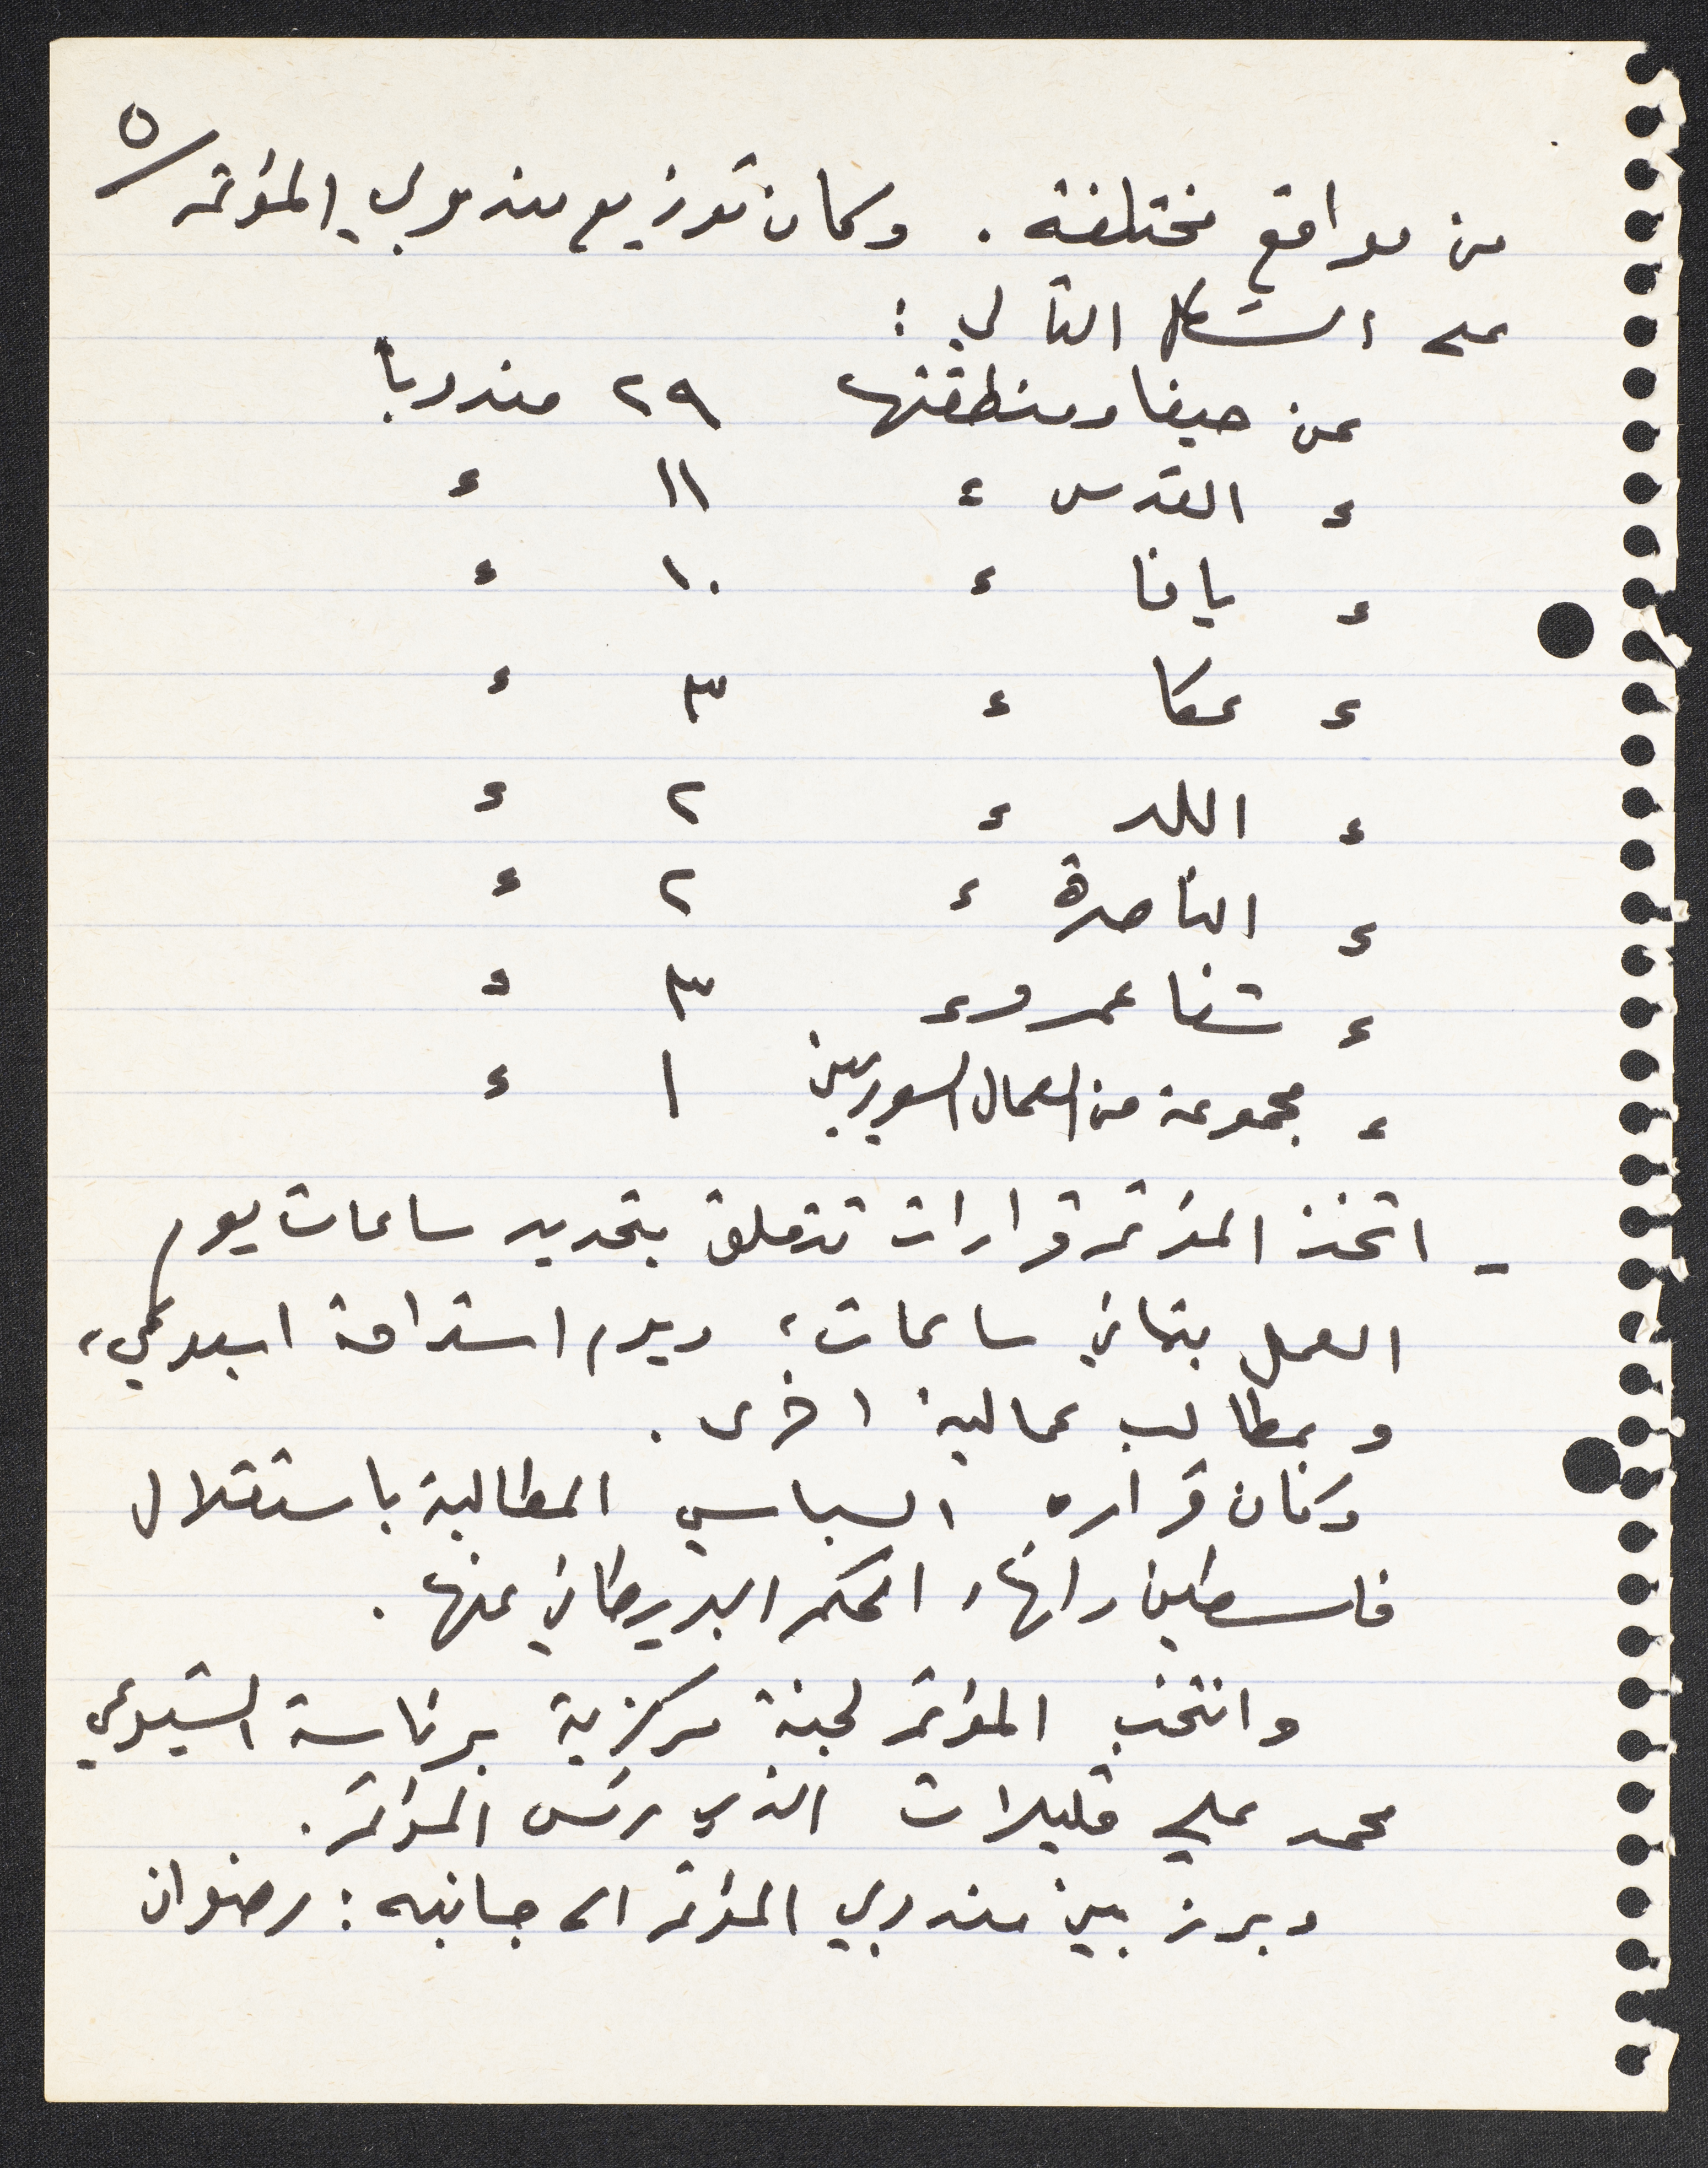 ٥/
من مواقع مختلفة . وكان توزيع مندوبي المؤتمر
على الشكل التالي :
عن حيفا ومنطقتها ٢٩ مندوبا
ء القدس ء ١١ ء
ء يافا ء ١٠ ء
ء عكا ء ٣ ء
ء اللد ء ٢ ء
ء الناصرة ء ٢ ء
ء شفا عمرو ء ٣ ء
ء مجموعة من العمال السوريين ١ ء
- اتخذ المؤتمر قرارات تتعلق بتحديد ساعات يوم
العمل بثماني ساعات، ويوم استراحة اسبوعي،
وبمطالب عمالية اخرى .
وكان قراره السياسي المطالبة باستقلال
فلسطين وانهاء الحكم البريطاني عنها .
وانتخب المؤتمر لجنة مركزية برئاسة الشيوعي
محمد علي قليلات الذي رئس المؤتمر .
وبرز بين مندوبي المؤتمر الى جانبه : رضوان